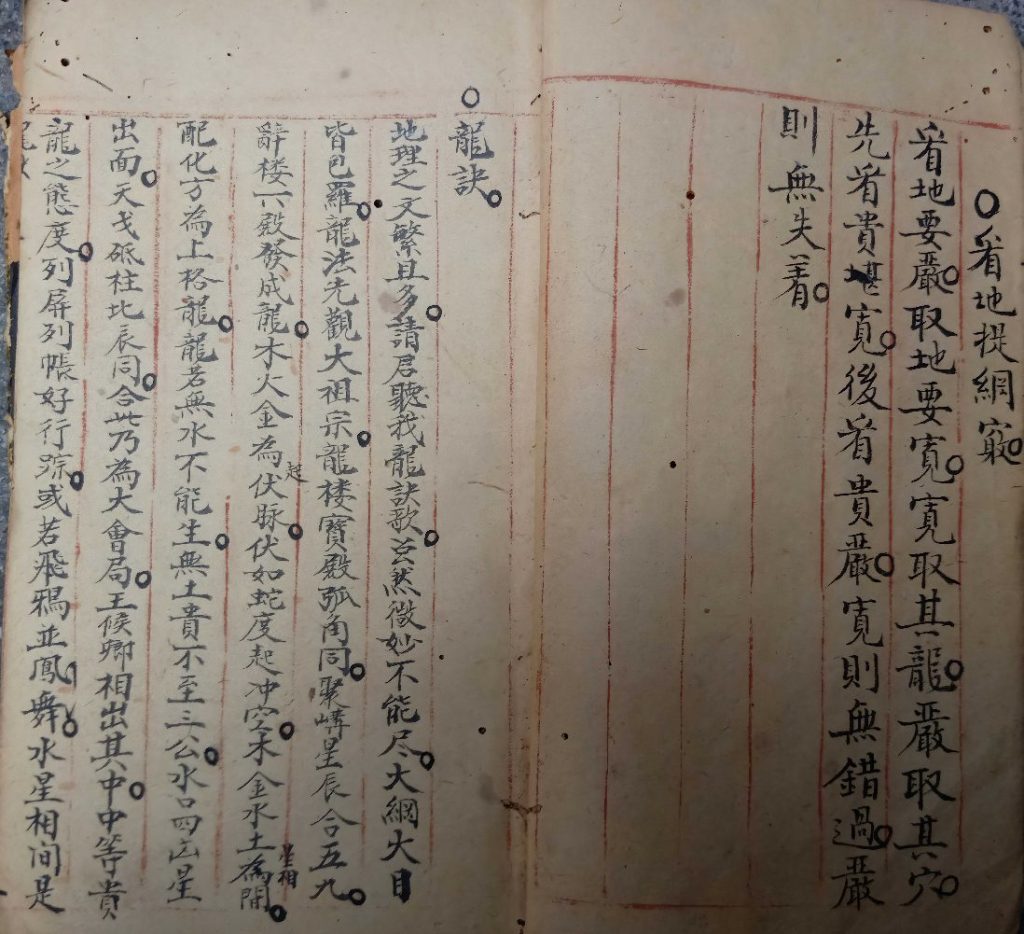 ○看地提綱竅○
看地要嚴○取地要寬○寬取其龍○嚴取其穴○
先看貴堪寬○後看貴嚴○寬則無錯過○嚴
則無失着○
○
龍訣○
地理之文繁且多○請君聽我龍訣歌○玄然微妙不能尽○大綱大目
皆包羅○龍法先觀大祖宗○龍楼寶殿弧角同○聚講星辰合五九○
辭楼下殿發成龍○木火金為起伏脉○伏如蛇度起冲空○木金水土為開○坐相
配化方為上格龍○龍若無水不能生○無土貴不至三公○水口四凶星
出面○天戈砥柱北辰同○合此乃為大會局○王候卿相出其中○中等貴
龍之態度○列屏列帳好行踪○或若飛鴉並鳳舞○水星相间是